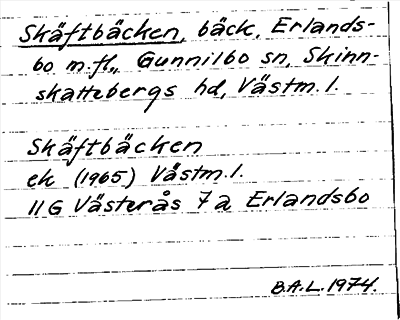 Skäftbäcken, bäck, Erlands-
bo m.fl., Gunnilbo sn, Skinn-
skattebergs hd, Västm. l.
Skäftbäcken
ek (1965) Västm. l.
11 G Västerås 7 a Erlandsbo
B.A.L. 1974.